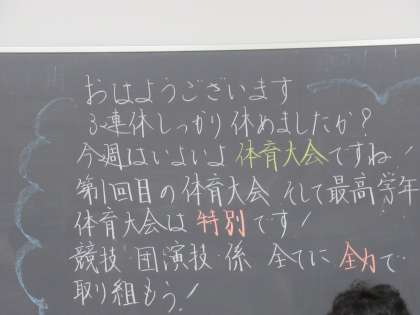 おはようございます
3連休しっかり休めましたか?
今週はいよいよ体育大会ですね!
第1回目の体育大会 そして最高学年
体育大会は特別です!
競技・団演技・係 全てに全力で
取り組もう!